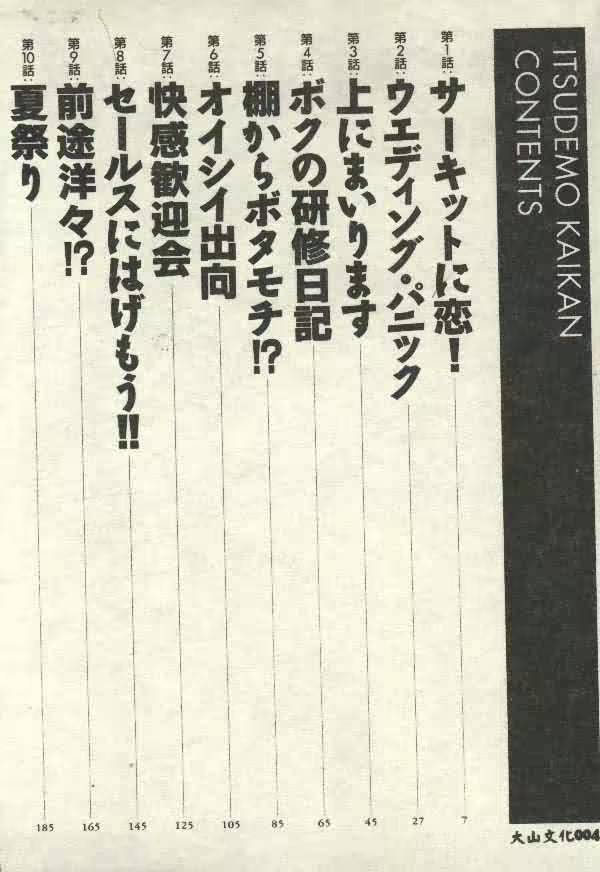 ITSUDEMO KAIKAN
CONTENTS
第1話：サーキットに恋！ 7
第2話：ウエディング・パニック 27
第3話：上にまいります 45
第4話：ボクの研修日記 65
第5話：棚からボタモチ!? 85
第6話：オイシイ出向 105
第7話：快感歓迎会 125
第8話：セールスにはげもう!! 145
第9話：前途洋々!? 165
第10話：夏祭り 185
大山文化004